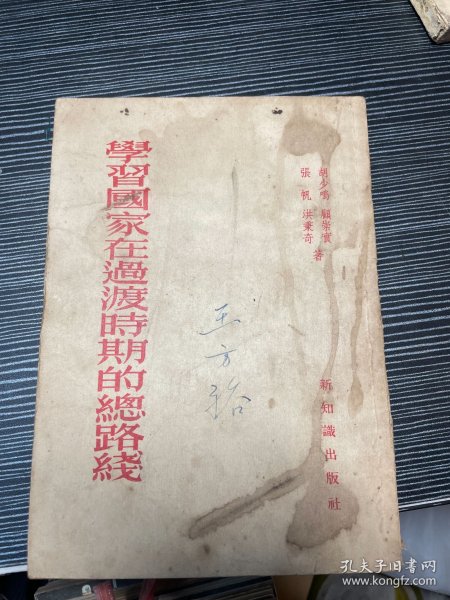 胡少鳴 顧崇實
張帆 洪秉奇 著
學習國家在過渡時期的總路綫
新知識出版社
王方
孔夫子旧书网
www.kongfz.com